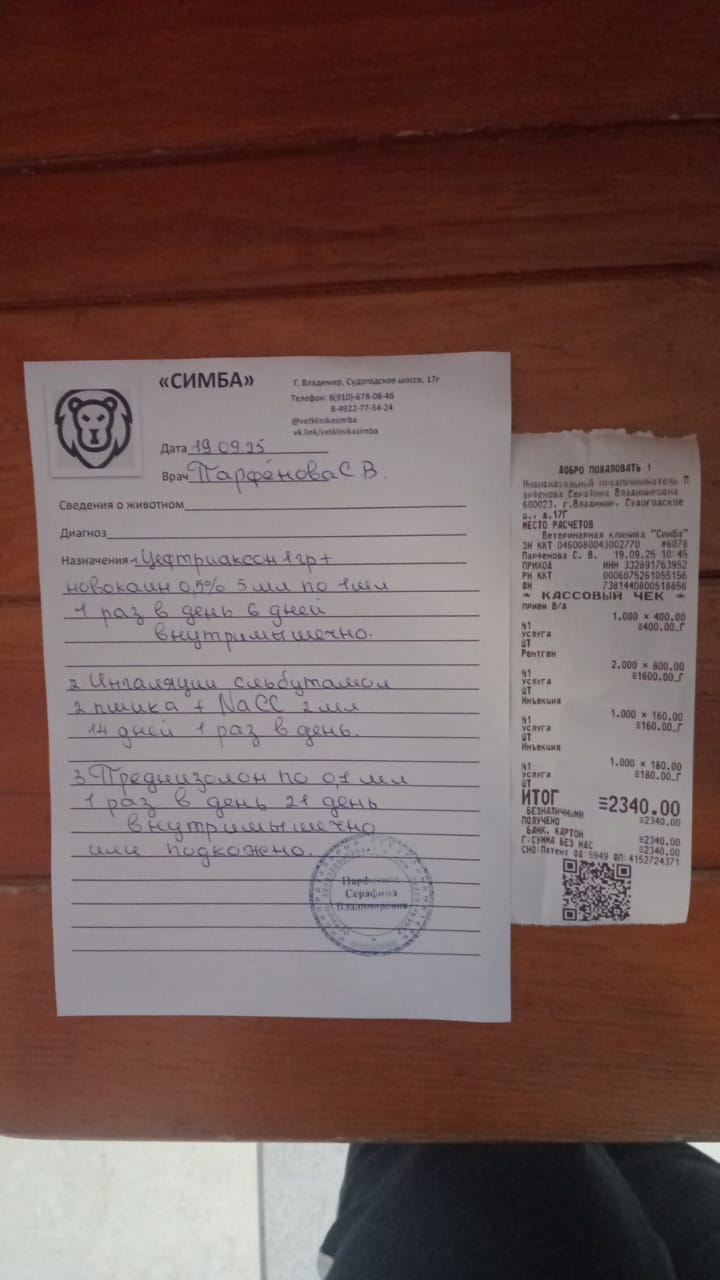 «СИМБА»
Г. Владимир, Судогодское шоссе, 17г
Телефон: 8(910)-678-08-46
8-4922-77-34-24
@vetklinikasimba
vk.link/vetklinikasimba
Дата 19.09.25
Врач Парфёнова С В.
Сведения о животном
Диагноз
Назначения 1 Цефтриаксон 1гр+
новокаин 0,5% 5 мл по 1 мл
1 раз в день 6 дней
внутримышечно.
2 Ингаляции сльбутамол
2 пшика + NaCC 2 мл
14 дней 1 раз в день.
3. Преднизолон по 0,1 мл
1 раз в день 21 день
внутримышечно
или подкожно.
Парфёнова
Серафима
Владимировна
ДОБРО ПОЖАЛОВАТЬ !
Индивидуальный предприниматель П
арфенова Серафима Владимировна
600023, г.Владимир, Судогодское
ш., д.17Г
МЕСТО РАСЧЕТОВ
Ветеринарная клиника "Симба"
ЗН ККТ 0460080043002770 #6078
Парфенова С. В. 19.09.25 10:45
ПРИХОД ИНН 332891763952
РН ККТ 0006075261055156
ФН 7381440800518856
* КАССОВЫЙ ЧЕК *
прием б/а
1.000 × 400.00
№1 ≡400.00_Г
УСЛУГА
ШТ
Рентген
2.000 × 800.00
№1 ≡1600.00_Г
УСЛУГА
ШТ
Инъекция
1.000 × 160.00
№1 ≡160.00_Г
УСЛУГА
ШТ
Инъекция
1.000 × 180.00
№1 ≡180.00_Г
УСЛУГА
ШТ
ИТОГ ≡2340.00
БЕЗНАЛИЧНЫМИ ≡2340.00
ПОЛУЧЕНО
БАНК. КАРТОЙ ≡2340.00
Г:СУММА БЕЗ НДС ≡2340.00
СНО:Патент ФД:5949 ФП:4152724371